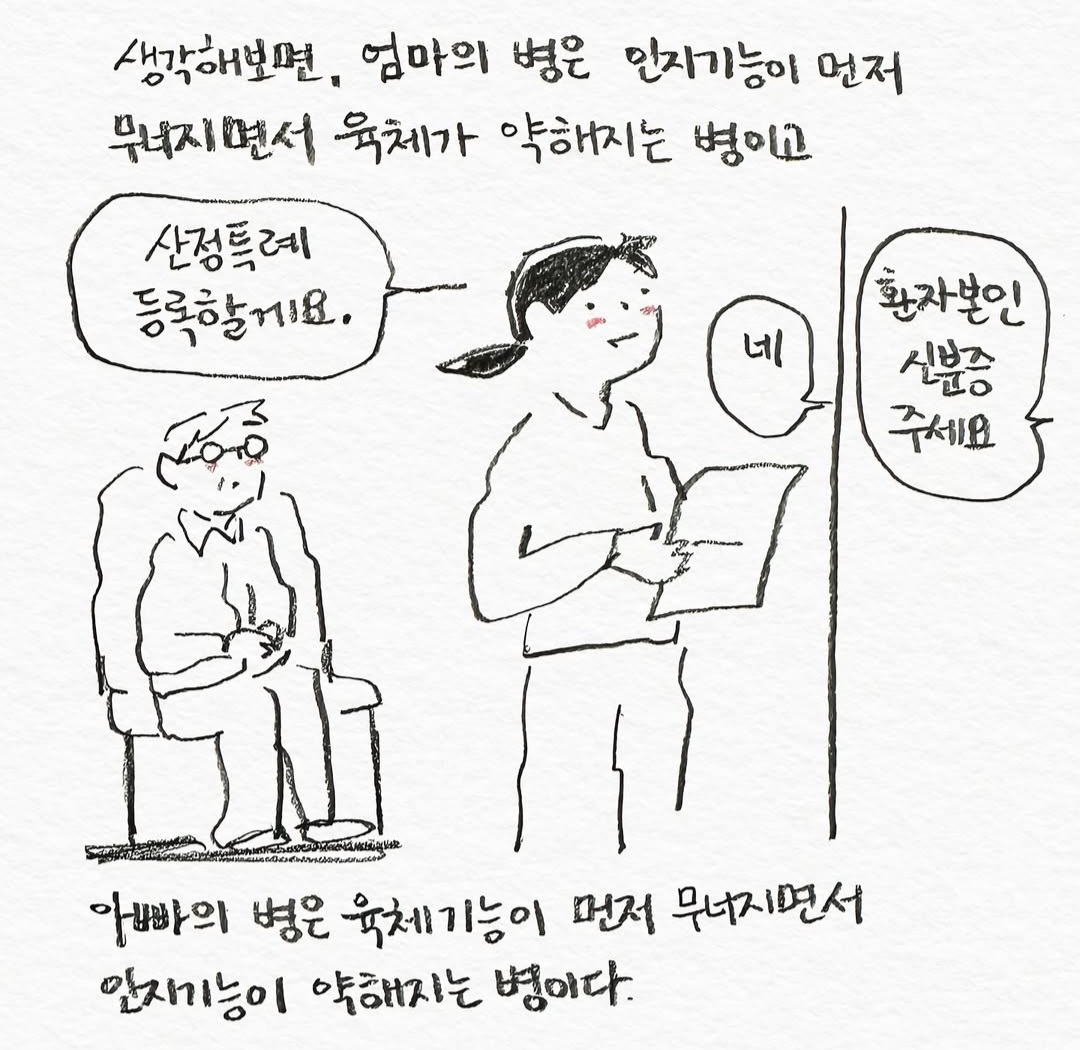 생각해보면, 엄마의 병은 인지기능이 먼저
무너지면서 육체가 약해지는 병이고
산정특례
등록할게요.
환자본인
신분증
주세요
네
아빠의 병은 육체기능이 먼저 무너지면서
인지기능이 약해지는 병이다.